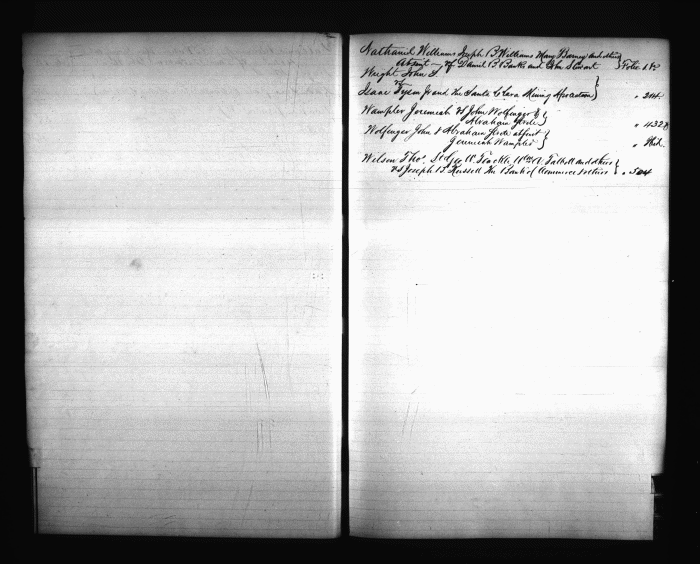 Nathaniel Williams Joseph B. Williams Mary Barney and others } Folio 1 to
Absent — vs Daniel B. Banks and John Stewart
Wright John S.
vs
Isaac Tyson Jr and the Santa Clara Mining Association } " 214
Wampler Jeremiah vs John Wolfinger &
Abraham } " 432
Wolfinger John & Abraham absent
Jeremiah Wampler } " Ibid.
Wilson Thos. Geo. W. Wm. A. Talbott and others
vs Joseph B. Russell The Bank of Commerce & others } " 504